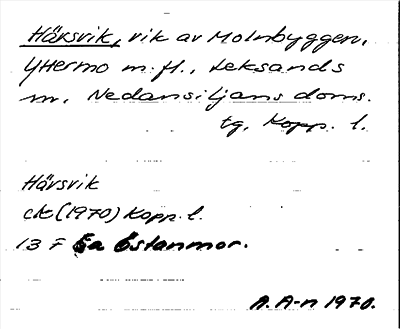 Härsvik, vik av Molnbyggen,
Yttermo m. fl., Leksands
m, Nedansiljans doms.
tg, Kopp. l.
Härsvik
ck (1970) Kopp. l.
13 F 5a Östanmor.
A. A-n 1970.